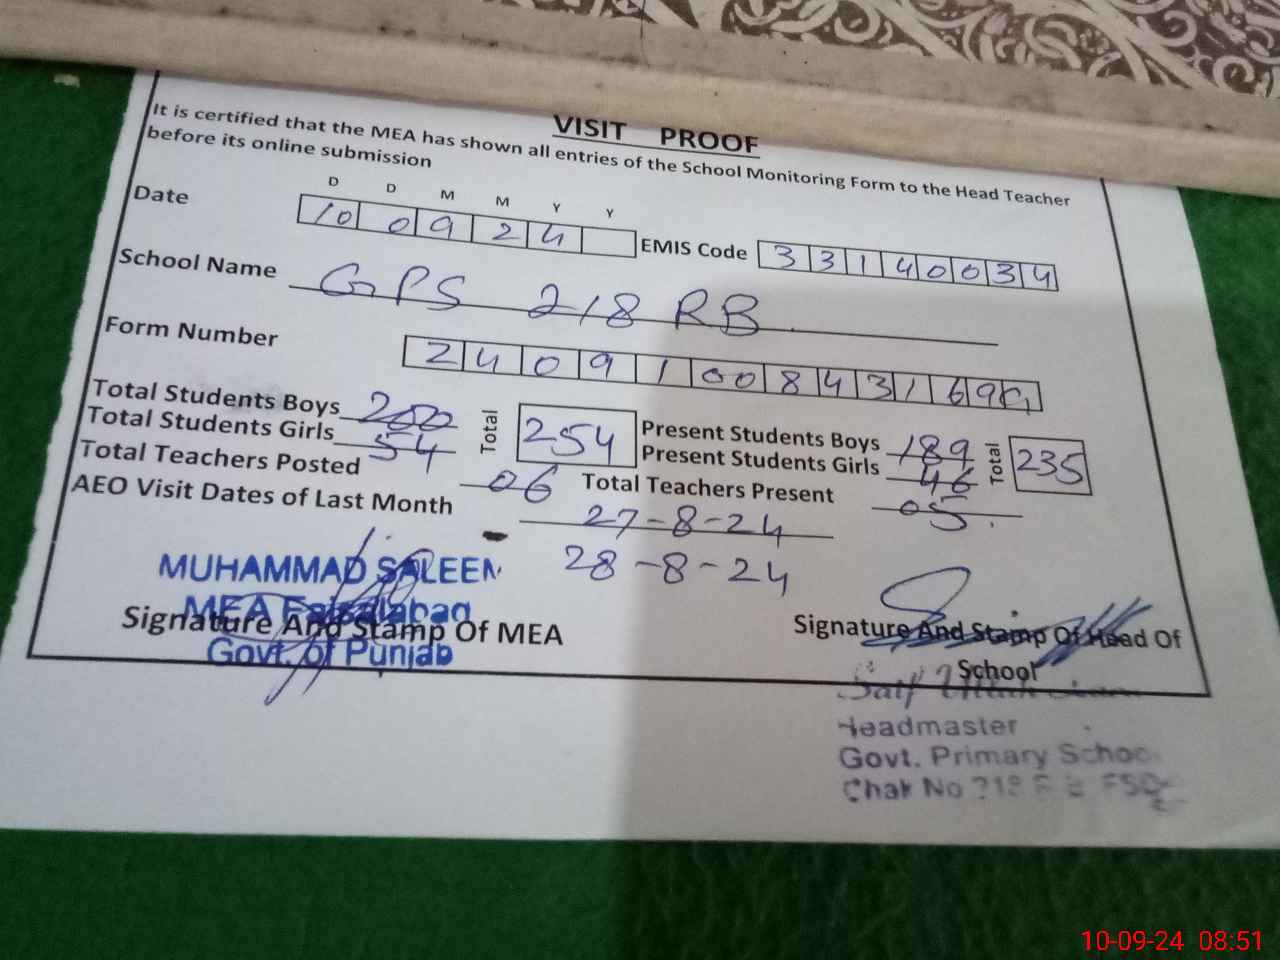 VISIT PROOF
It is certified that the MEA has shown all entries of the School Monitoring Form to the Head Teacher
before its online submission
D D M M Y Y
Date 10 0 9 2 4 EMIS Code 3 3 1 4 0 0 3 4
School Name GPS 218 RB
Form Number 2 4 0 9 1 00 8 4 3 1 6 9
Total Students Boys 200 Total 254 Present Students Boys 189 Total 235
Total Students Girls 54 Present Students Girls 46
Total Teachers Posted 06 Total Teachers Present 05
AEO Visit Dates of Last Month 27-8-24
28-8-24
MUHAMMAD SALEEM
MEA Faisalabad
Signature And Stamp Of MEA
Govt. of Punjab
Signature And Stamp Of Head Of
School
Headmaster
Govt. Primary School
Chak No 218 FSD
10-09-24 08:51